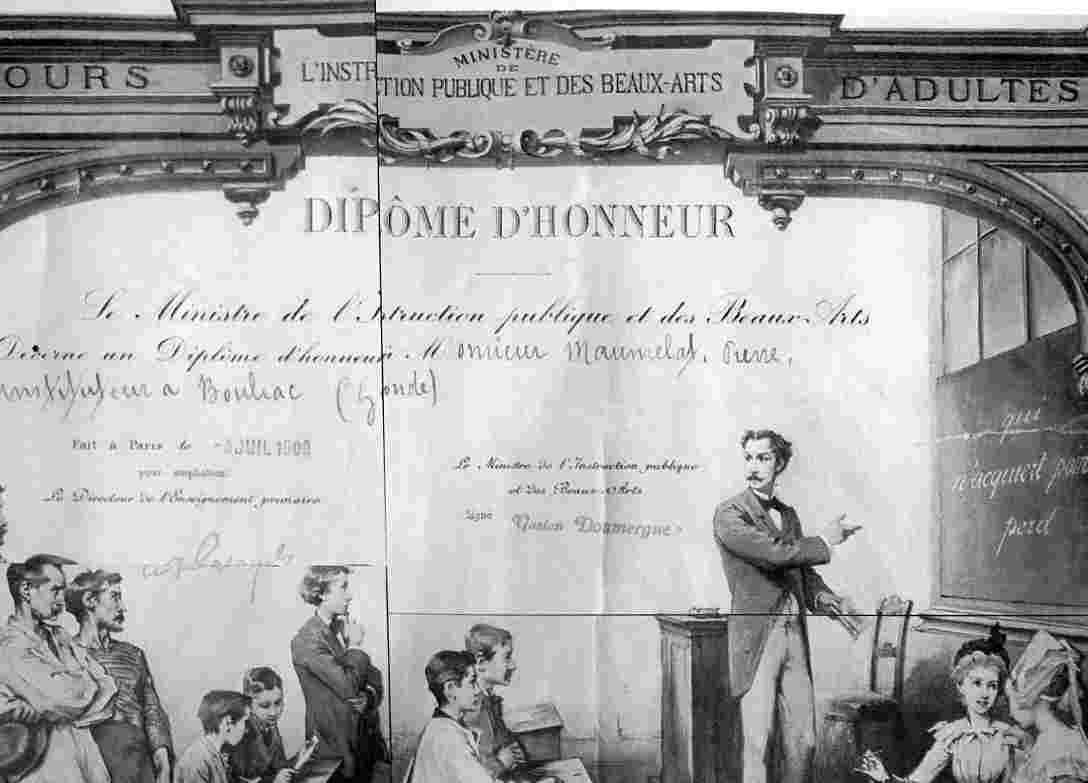 MINISTÈRE
DE
L'INSTRCTION PUBLIQUE ET DES BEAUX-ARTS
OURS
D'ADULTES
DIPÔME D'HONNEUR
Le Ministre de l'Istruction publique et des Beaux-Arts
Décerne un Diplôme d'honneur à Monsieur Maumelat, Pierre,
instituteur à Bouliac (Gironde)
Fait à Paris le -3 JUIL 1909
pour ampliation
Le Directeur de l'Enseignement primaire
Le Ministre de l'Instruction publique
et des Beaux-Arts
Signé Gaston Doumergue
qui
n'acquiert
perd